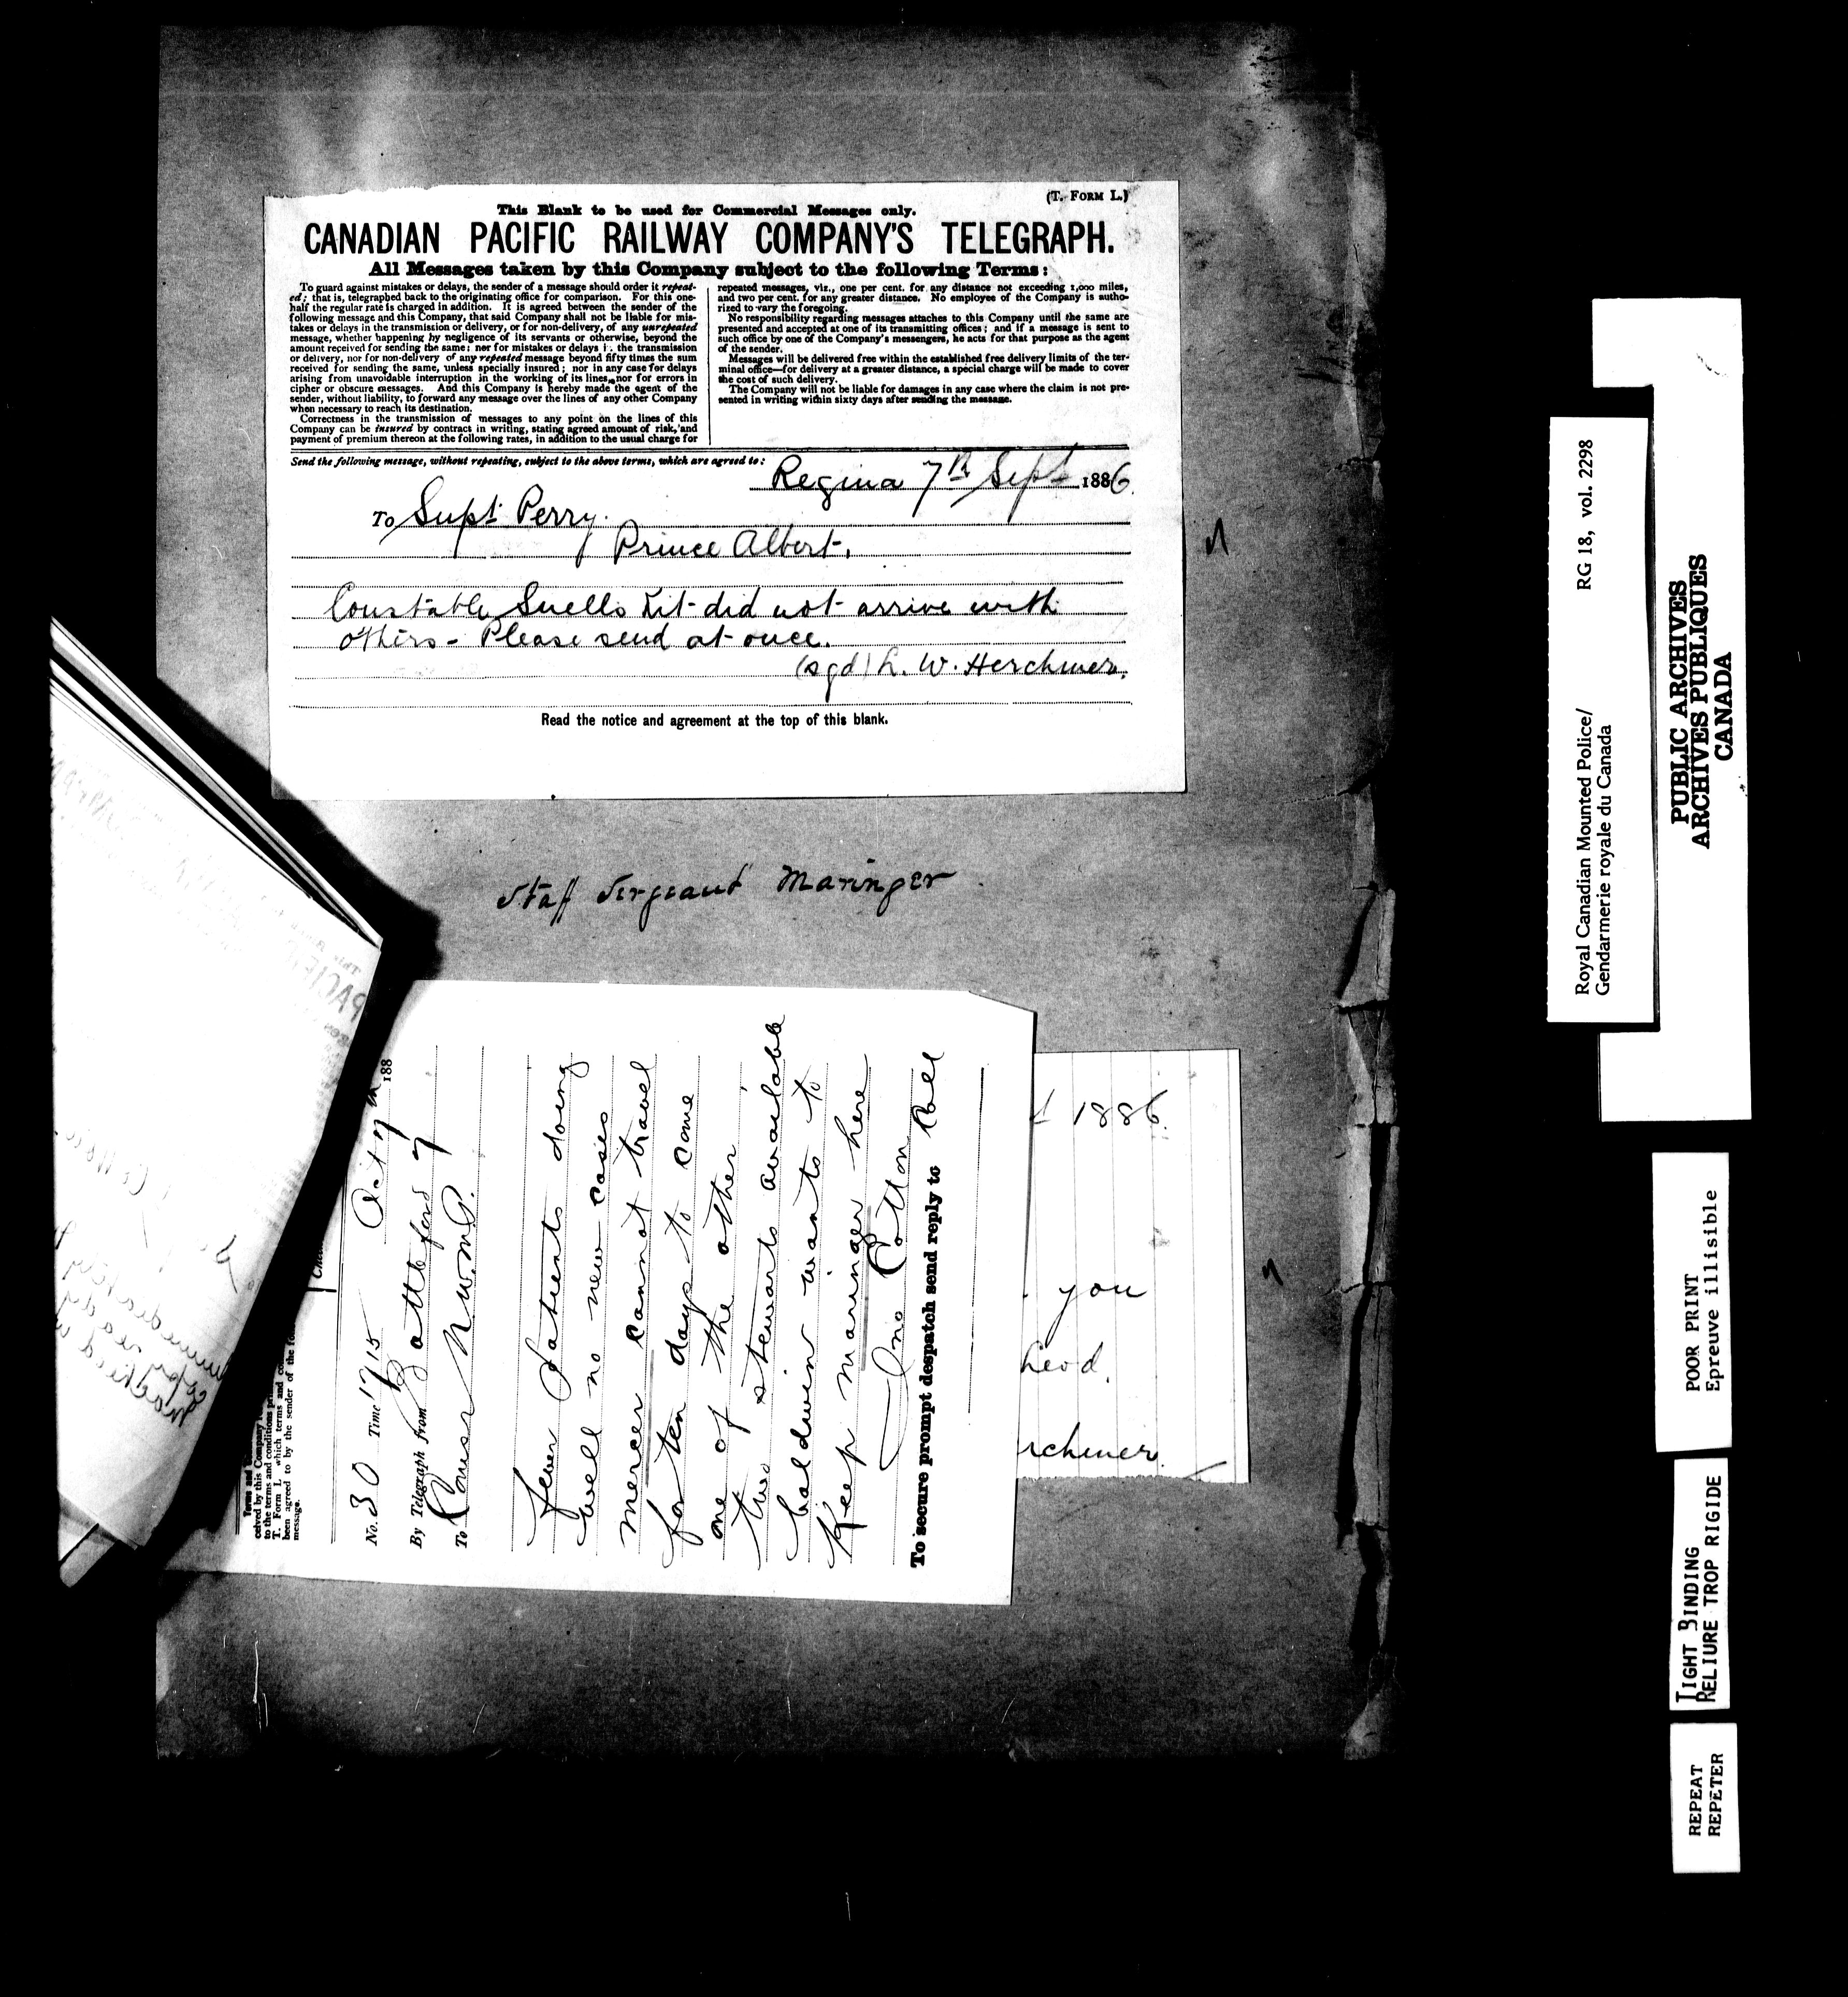 (T. FORM L.)
This Blank to be used for Commercial Messages only.
CANADIAN PACIFIC RAILWAY COMPANY'S TELEGRAPH.
All Messages taken by this Company subject to the following Terms:
To guard against mistakes or delays, the sender of a message should order it repeat-
ed; that is, telegraphed back to the originating office for comparison. For this one-
half the regular rate is charged in addition. It is agreed between the sender of the
following message and this Company, that said Company shall not be liable for mis-
takes or delays in the transmission or delivery, or for non-delivery, of any unrepeated
message, whether happening by negligence of its servants or otherwise, beyond the
amount received for sending the same; nor for mistakes or delays i: the transmission
or delivery, nor for non-delivery of any repeated message beyond fifty times the sum
received for sending the same, unless specially insured; nor in any case for delays
arising from unavoidable interruption in the working of its lines, nor for errors in
cipher or obscure messages. And this Company is hereby made the agent of the
sender, without liability, to forward any message over the lines of any other Company
when necessary to reach its destination.
Correctness in the transmission of messages to any point on the lines of this
Company can be insured by contract in writing, stating agreed amount of risk, and
payment of premium thereon at the following rates, in addition to the usual charge for
repeated messages, viz., one per cent. for any distance not exceeding 1,000 miles,
and two per cent. for any greater distance. No employee of the Company is autho-
rized to vary the foregoing.
No responsibility regarding messages attaches to this Company until the same are
presented and accepted at one of its transmitting offices; and if a message is sent to
such office by one of the Company's messengers, he acts for that purpose as the agent
of the sender.
Messages will be delivered free within the established free delivery limits of the ter-
minal office—for delivery at a greater distance, a special charge will be made to cover
the cost of such delivery.
The Company will not be liable for damages in any case where the claim is not pre-
sented in writing within sixty days after sending the message.
Send the following message, without repeating, subject to the above terms, which are agreed to:
Regina 7th Sept 1886.
To Supt Perry.
Prince Albert.
Constable Snells Kit did not arrive with
others - Please send at once.
(sgd) L. W. Herchmer.
Read the notice and agreement at the top of this blank.
Staff Sergeant Maringer
ceived by this Company
to the terms and conditions
T. Form I., which terms and
been agreed to by the sender of the
message.
No. 30 Time 17 15 Oct 7th 188
By Telegraph from Battleford 7
To Comsr N.W.M.P.
fever patients doing
well no new cases
mercer cannot travel
for ten days to come
one of the other
two stewards available
baldwin wants to
Keep maringer here
Jno Cotton
To secure prompt despatch send reply to
1886
you
leod.
rchmer.
immediately
Royal Canadian Mounted Police/
Gendarmerie royale du Canada
RG 18, vol. 2298
PUBLIC ARCHIVES
ARCHIVES PUBLIQUES
CANADA
POOR PRINT
Epreuve illisible
TIGHT BINDING
RELIURE TROP RIGIDE
REPEAT
REPETER